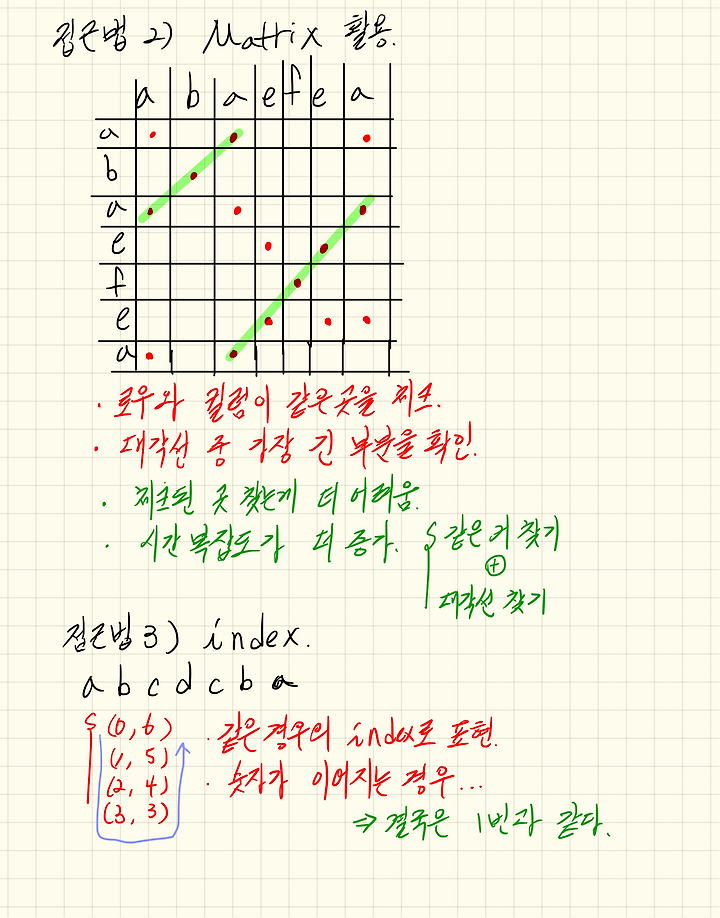 접근법 2) Matrix 활용.
a b a e f e a
a
b
a
e
f
e
a
· 로우와 컬럼이 같은 곳을 체크.
· 대각선 중 가장 긴 부분을 확인.
· 체크된 곳 찾는게 더 어려움.
· 시간 복잡도가 더 증가. 같은 거 찾기
+
대각선 찾기
접근법 3) index.
a b c d c b a
(0, 6) · 같은 경우의 index로 표현.
(1, 5)
(2, 4) · 숫자가 이어지는 경우...
(3, 3)
⇒ 결국은 1번과 같다.